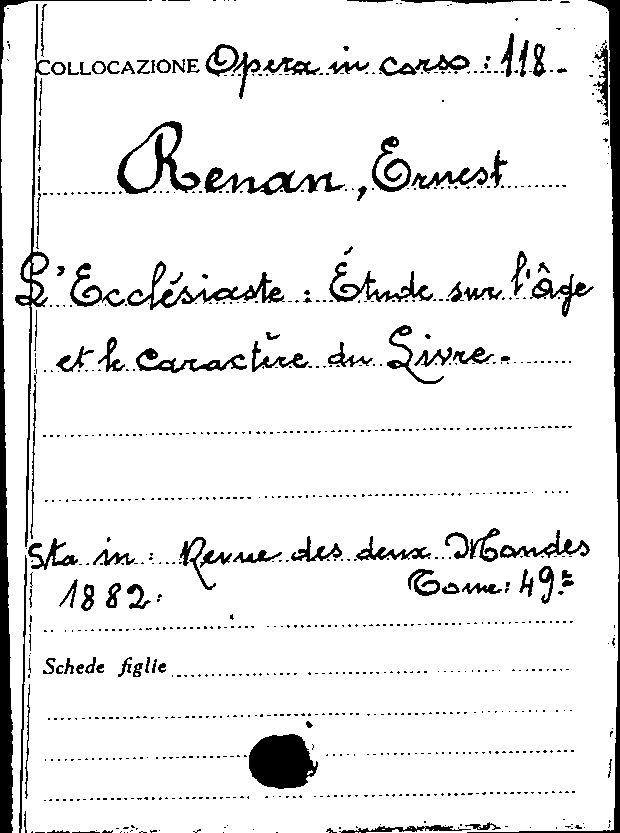 COLLOCAZIONE Opera in corso : 118.
Renan, Ernest
L'Ecclésiaste : Étude sur l'âge
et le caractère du Livre.
Sta in : Revue des deux Mondes
1882. Tome : 49.=
Schede figlie